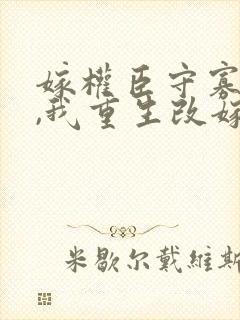 嫁權臣守寡
,我重生改嫁
米歇尔戴維斯